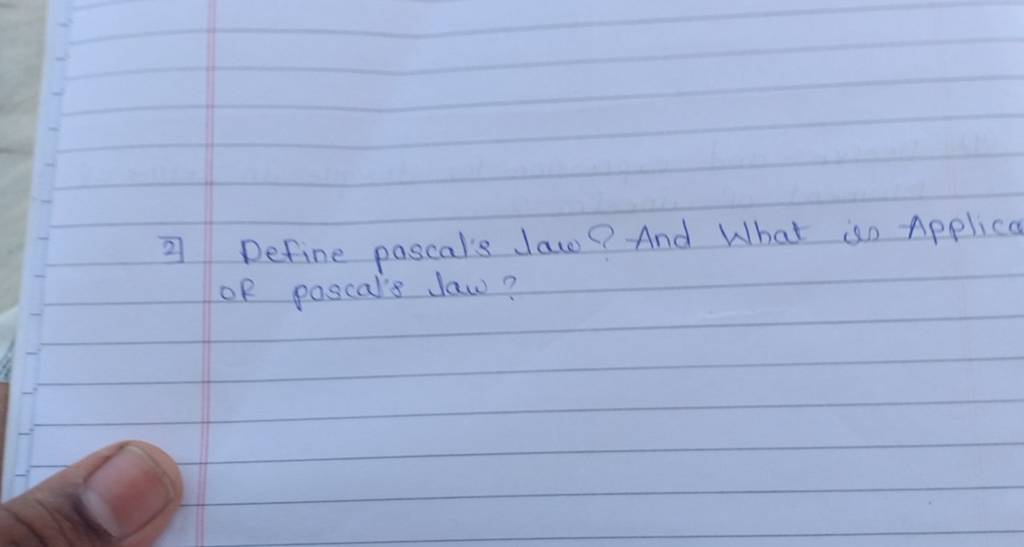 2] Define pascal's law? And What is Applica
of pascal's law?